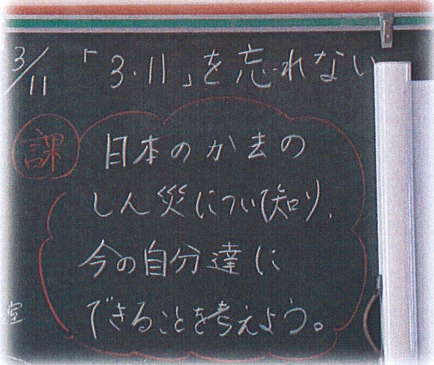 3/11 「3・11」を忘れない
課
日本のか去の
しん災について知り、
今の自分達に
できることを考えよう。